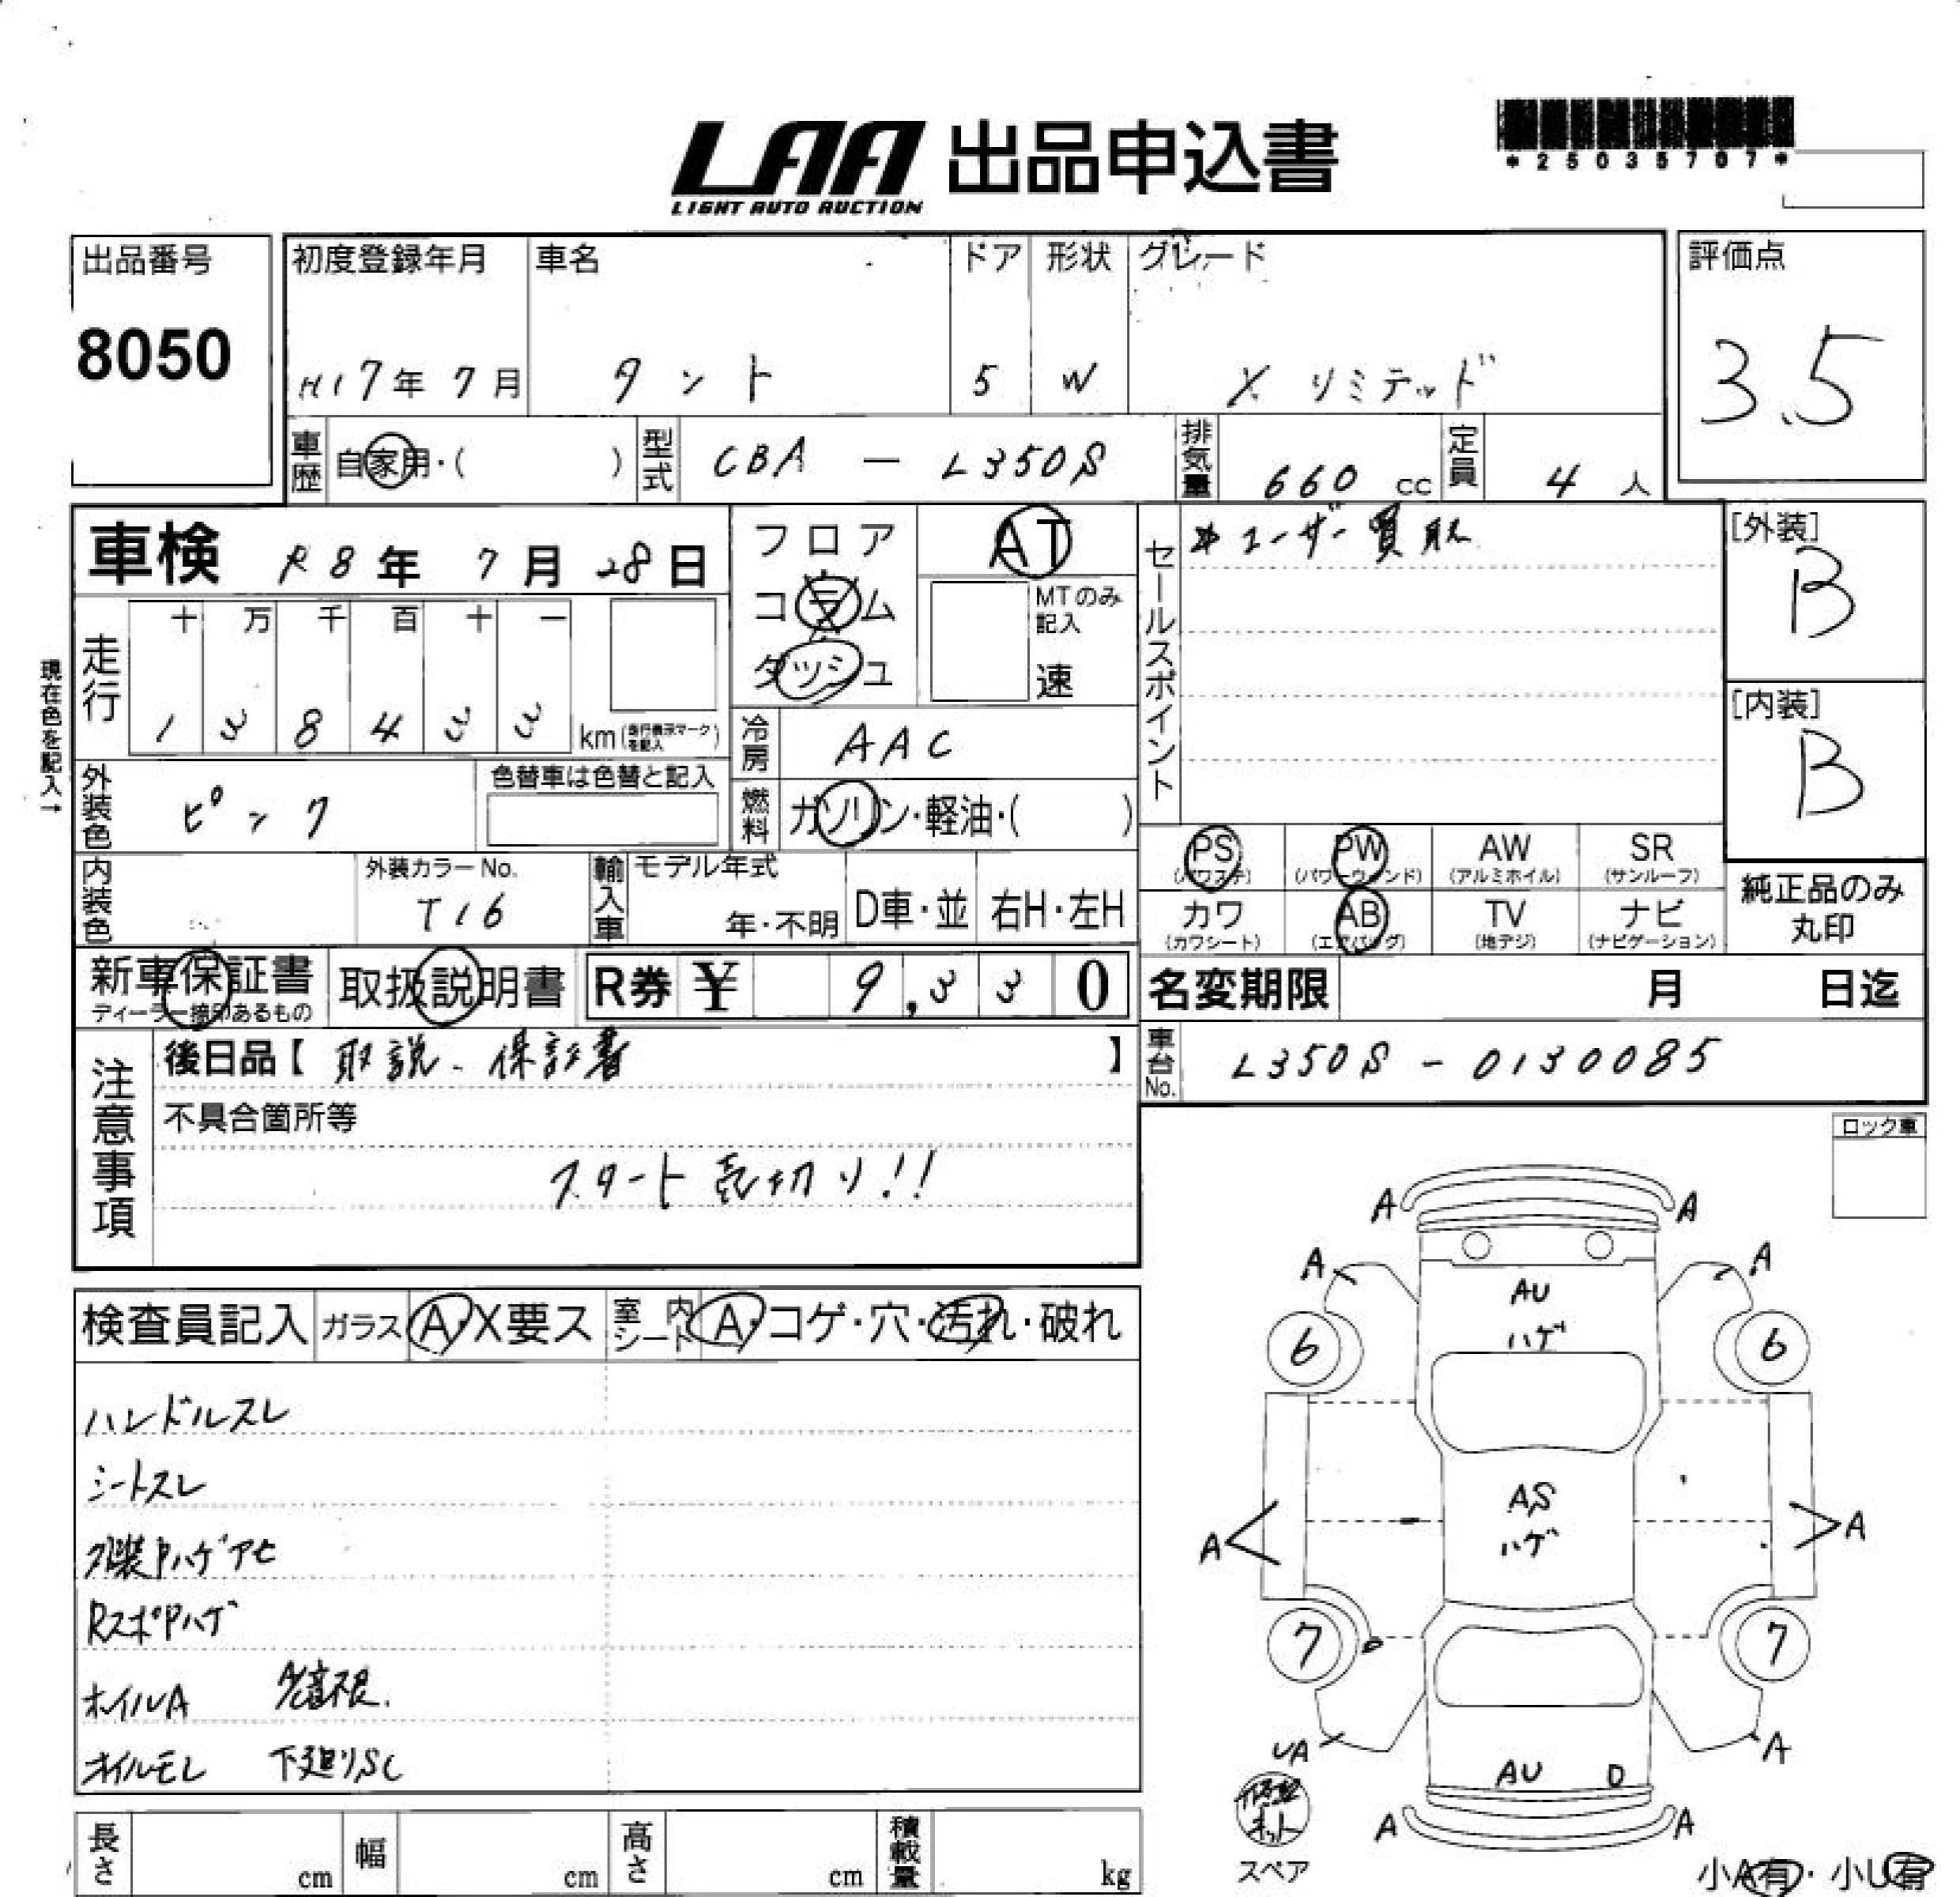 LAA 出品申込書
LIGHT AUTO AUCTION
*25035707*
出品番号
8050
初度登録年月 車名 ドア 形状 グレード
H17年 7月 タント 5 W Xリミテッド
評価点
3.5
車歴 自家用・( ) 型式 CBA - L350S 排気量 660 cc 定員 4 人
車検 R8年 7月 28日
フロア
コラム
ダッシュ
AT
MTのみ記入
速
セールスポイント
*ユーザー買取
[外装]
B
[内装]
B
現在色を記入→
走行 十 万 千 百 十 一
1 3 8 4 3 3 km(走行表示マークを記入)
冷房 AAC
外装色 ピンク
色替車は色替と記入
燃料 ガソリン・軽油・( )
PS (パワステ) PW (パワーウィンド) AW (アルミホイル) SR (サンルーフ)
カワ (カワシート) AB (エアバッグ) TV (地デジ) ナビ (ナビゲーション)
純正品のみ
丸印
内装色
外装カラーNo.
T16
輸入車 モデル年式
年・不明 D車・並 右H・左H
新車保証書
ディーラー捺印あるもの
取扱説明書
R券 ¥ 9,330
名変期限 月 日迄
注意事項
後日品【 取説、保証書 】
車台No. L350S - 0130085
不具合箇所等
スタート売切り!!
ロック車
検査員記入 ガラス A・X要ス 室内シート A・コゲ・穴・汚れ・破れ
ハンドルスレ
シートスレ
外装Pハゲアセ
RスポPハゲ
ホイルA
オイルモレ 下廻りSC
A A
A A
AU
ハゲ
6 6
AS
ハゲ
A A
7 7
UA A
AU D
修理キット
A A
スペア
小A有・小U有
長さ cm 幅 cm 高さ cm 積載量 kg